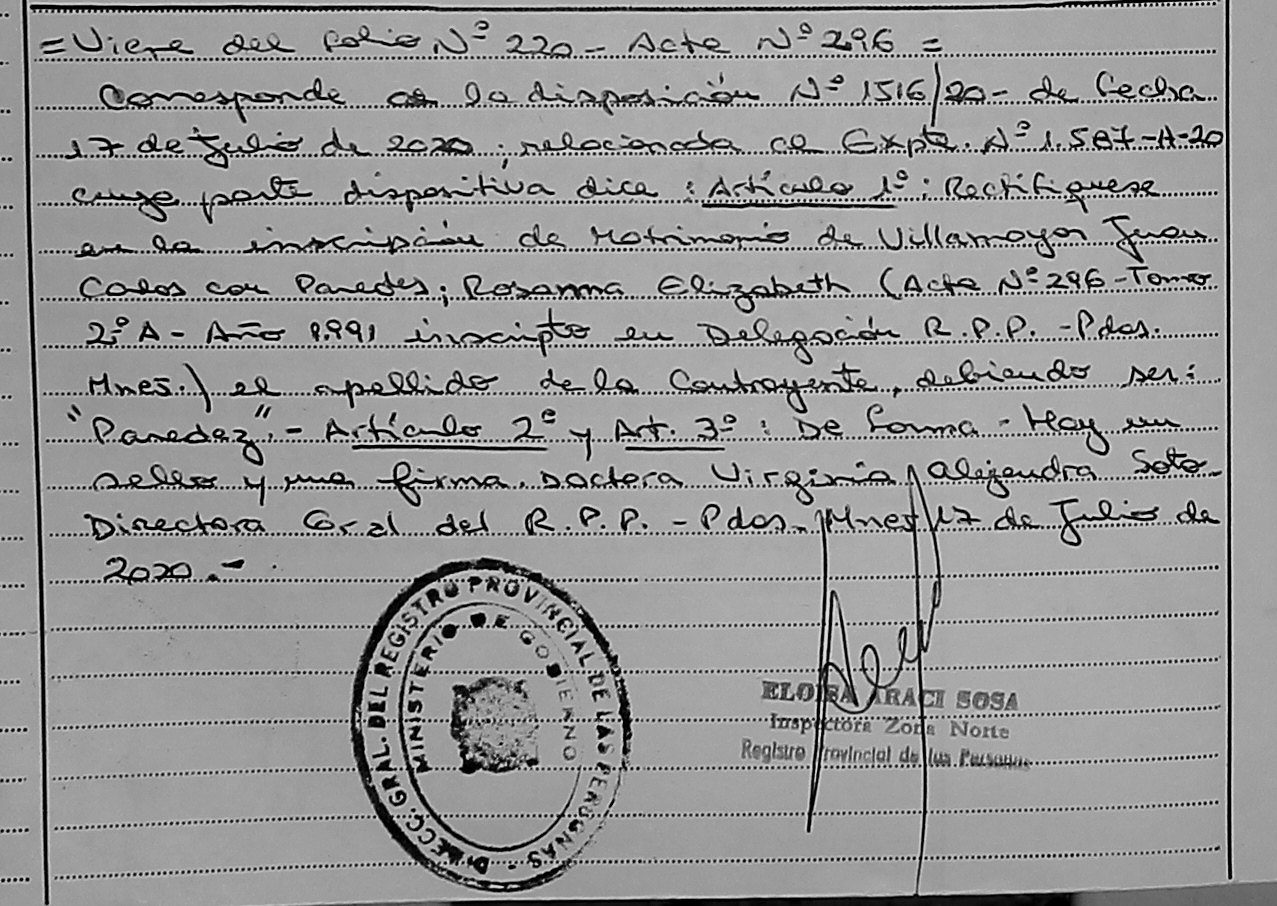 = Viene del folio Nº 220 - Acta Nº 296 =
Corresponde a la disposición Nº 1516/20 - de fecha
17 de Julio de 2020; relacionada al Expte. Nº 1.587-H-20
cuya parte dispositiva dice: Artículo 1º: Rectifiquese
en la inscripción de Matrimonio de Villamayor Juan
Carlos con Paredes; Rosanna Elizabeth (Acta Nº 296 - Tomo
2º A - Año 1.991 inscripto en Delegación R.P.P. - Pdas.
Mnes.) el apellido de la Contrayente, debiendo ser:
"Paredez". - Artículo 2º y Art. 3º: De forma - Hay un
sello y una firma. Doctora Virginia Alejandra Soto
Directora Gral del R.P.P. - Pdas. Mnes 17 de Julio de
2020.-
DIRECC. GRAL. DEL REGISTRO PROVINCIAL DE LAS PERSONAS -
MINISTERIO DE GOBIERNO
ELOISA ARACI SOSA
Inspectora Zona Norte
Registro Provincial de las Personas